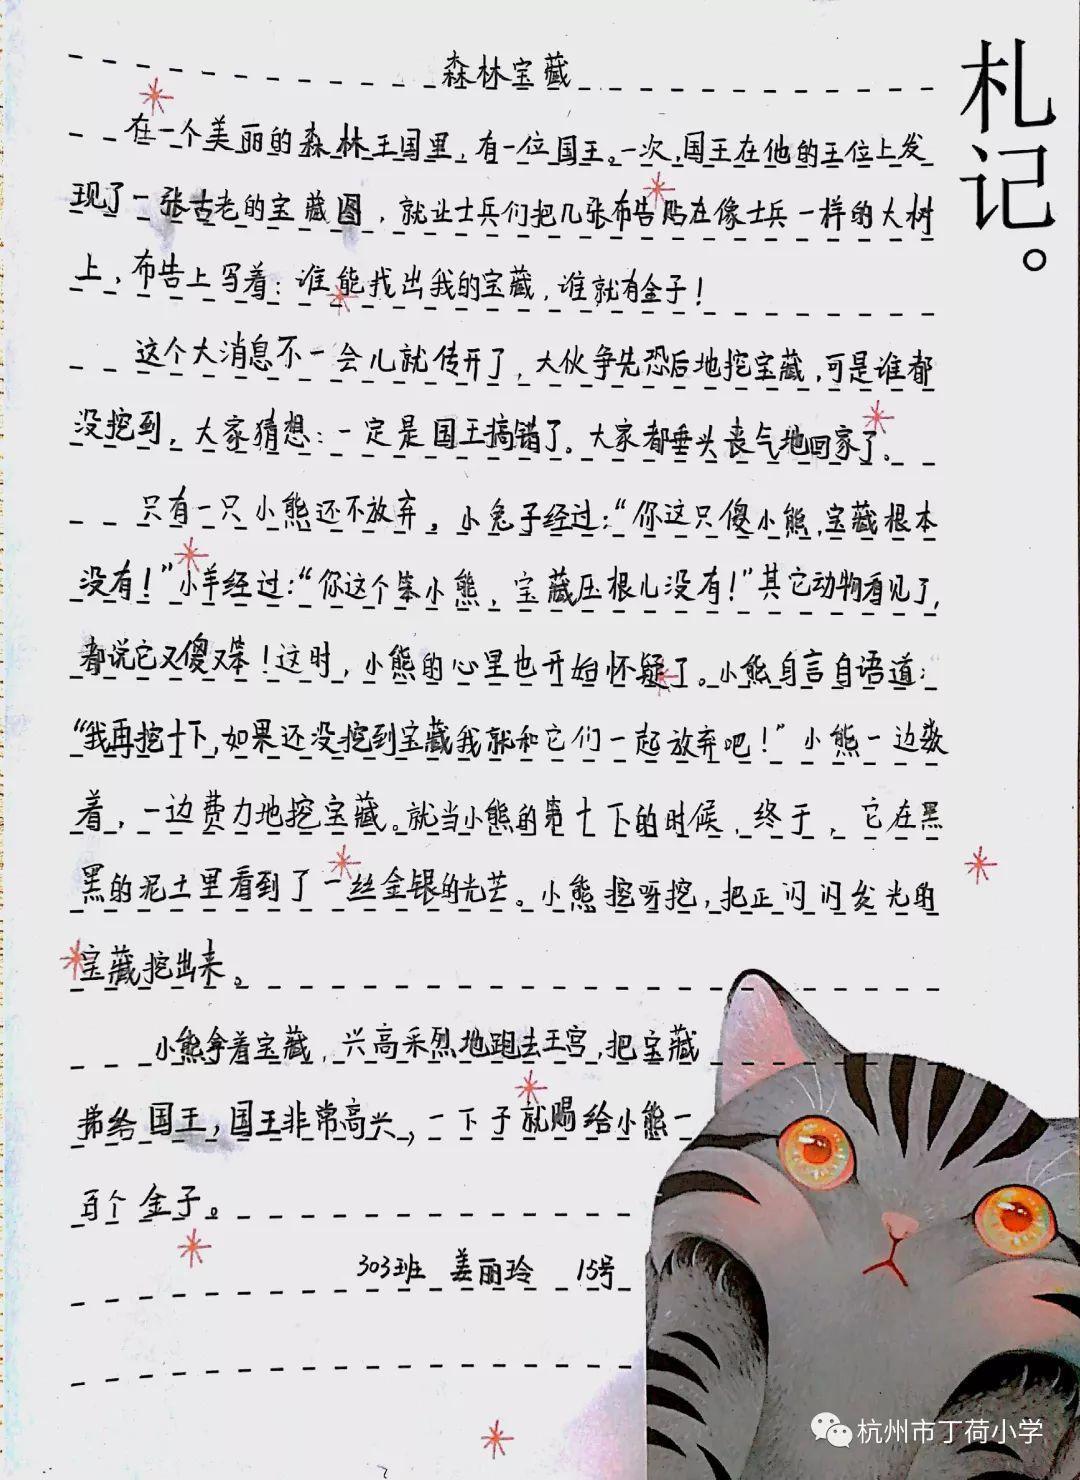 札记。
森林宝藏
在一个美丽的森林王国里，有一位国王。一次，国王在他的王位上发
现了一张古老的宝藏图，就让士兵们把几张布告贴在像士兵一样的大树
上，布告上写着：谁能找出我的宝藏，谁就有金子！
这个大消息不一会儿就传开了，大伙争先恐后地挖宝藏，可是谁都
没挖到。大家猜想：一定是国王搞错了。大家都垂头丧气地回家了。
只有一只小熊还不放弃。小兔子经过：“你这只傻小熊，宝藏根本
没有！”小羊经过：“你这个笨小熊，宝藏压根儿没有！”其它动物看见了，
都说它又傻又笨！这时，小熊的心里也开始怀疑了。小熊自言自语道：
“我再挖十下，如果还没挖到宝藏我就和它们一起放弃吧！”小熊一边数
着，一边费力地挖宝藏。就当小熊的第十下的时候，终于，它在黑
黑的泥土里看到了一丝金银的光芒。小熊挖呀挖，把正闪闪发光的
宝藏挖出来。
小熊拿着宝藏，兴高采烈地跑去王宫，把宝藏
弟给国王，国王非常高兴，一下子就赐给小熊一
百个金子。
303班 姜丽玲 15号
杭州市丁荷小学